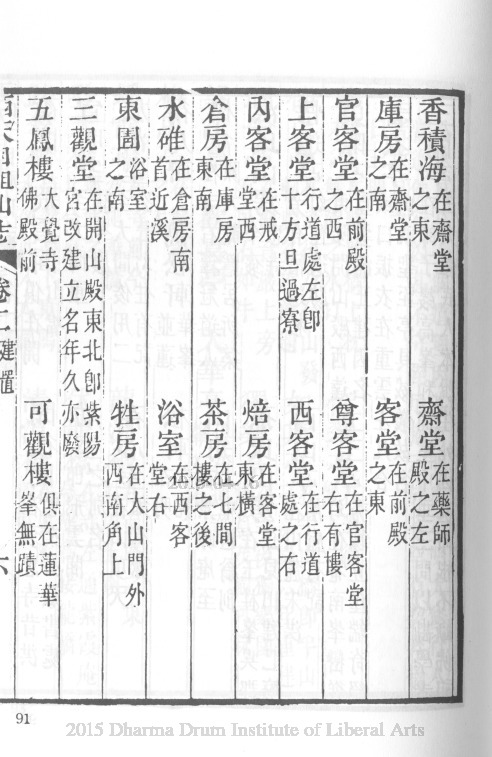 香積海在齋堂之東 齋堂在藥師殿之左
庫房在齋堂之南 客堂在前殿之東
官客堂在前殿之西 尊客堂在官客堂右有樓
上客堂行道處左卽十方旦過寮 西客堂在行道處之右
內客堂在戒堂西 焙房在客堂東橫
倉房在庫房東南 茶房在七間樓之後
水碓在倉房南首近溪 浴室在西客堂右
東圊浴室之南 牲房在大山門外西南角上
三觀堂在開山殿東北卽紫陽宮改建立名年久亦廢
五鳳樓大覺寺佛殿前 可觀樓俱在蓮華峯無蹟
西天目祖山志 卷二 建置 六
91
2015 Dharma Drum Institute of Liberal Arts